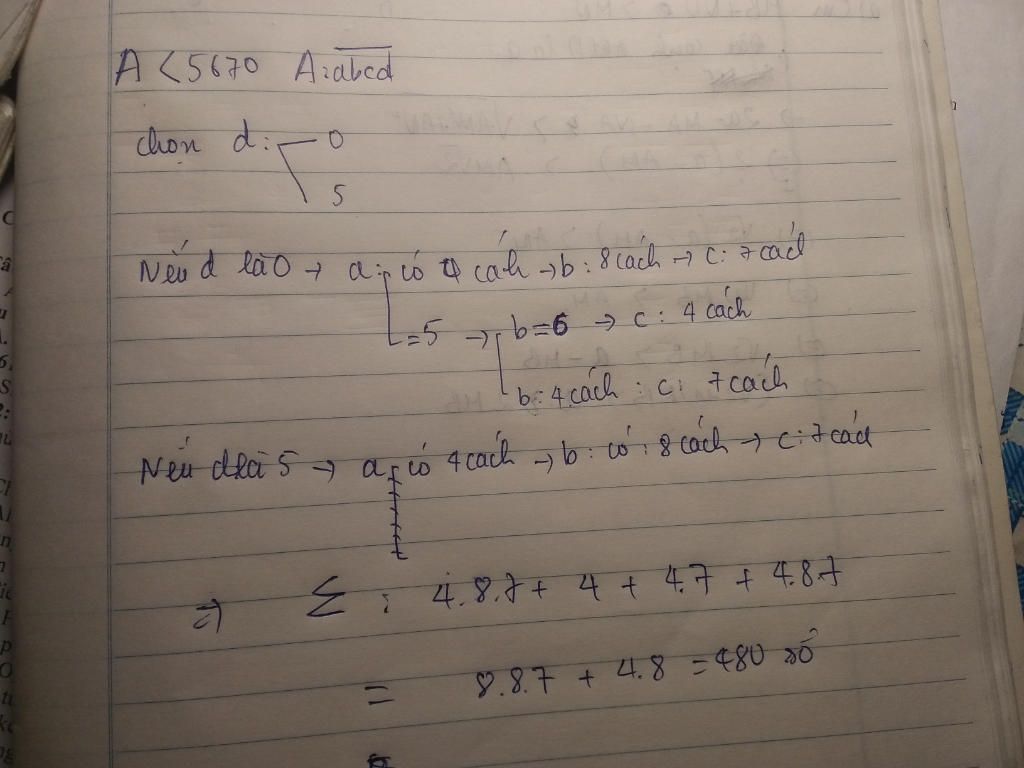 A < 5670 A: abcd
chọn d: 0
5
Nếu d là 0 → a: có 4 cách → b: 8 cách → c: 7 cách
= 5 → b = 6 → c: 4 cách
b: 4 cách : c: 7 cách
Nếu d là 5 → a có 4 cách → b: có: 8 cách → c: 7 cách
⇒ Σ : 4.8.7 + 4 + 4.7 + 4.8.7
= 8.8.7 + 4.8 = 480 số